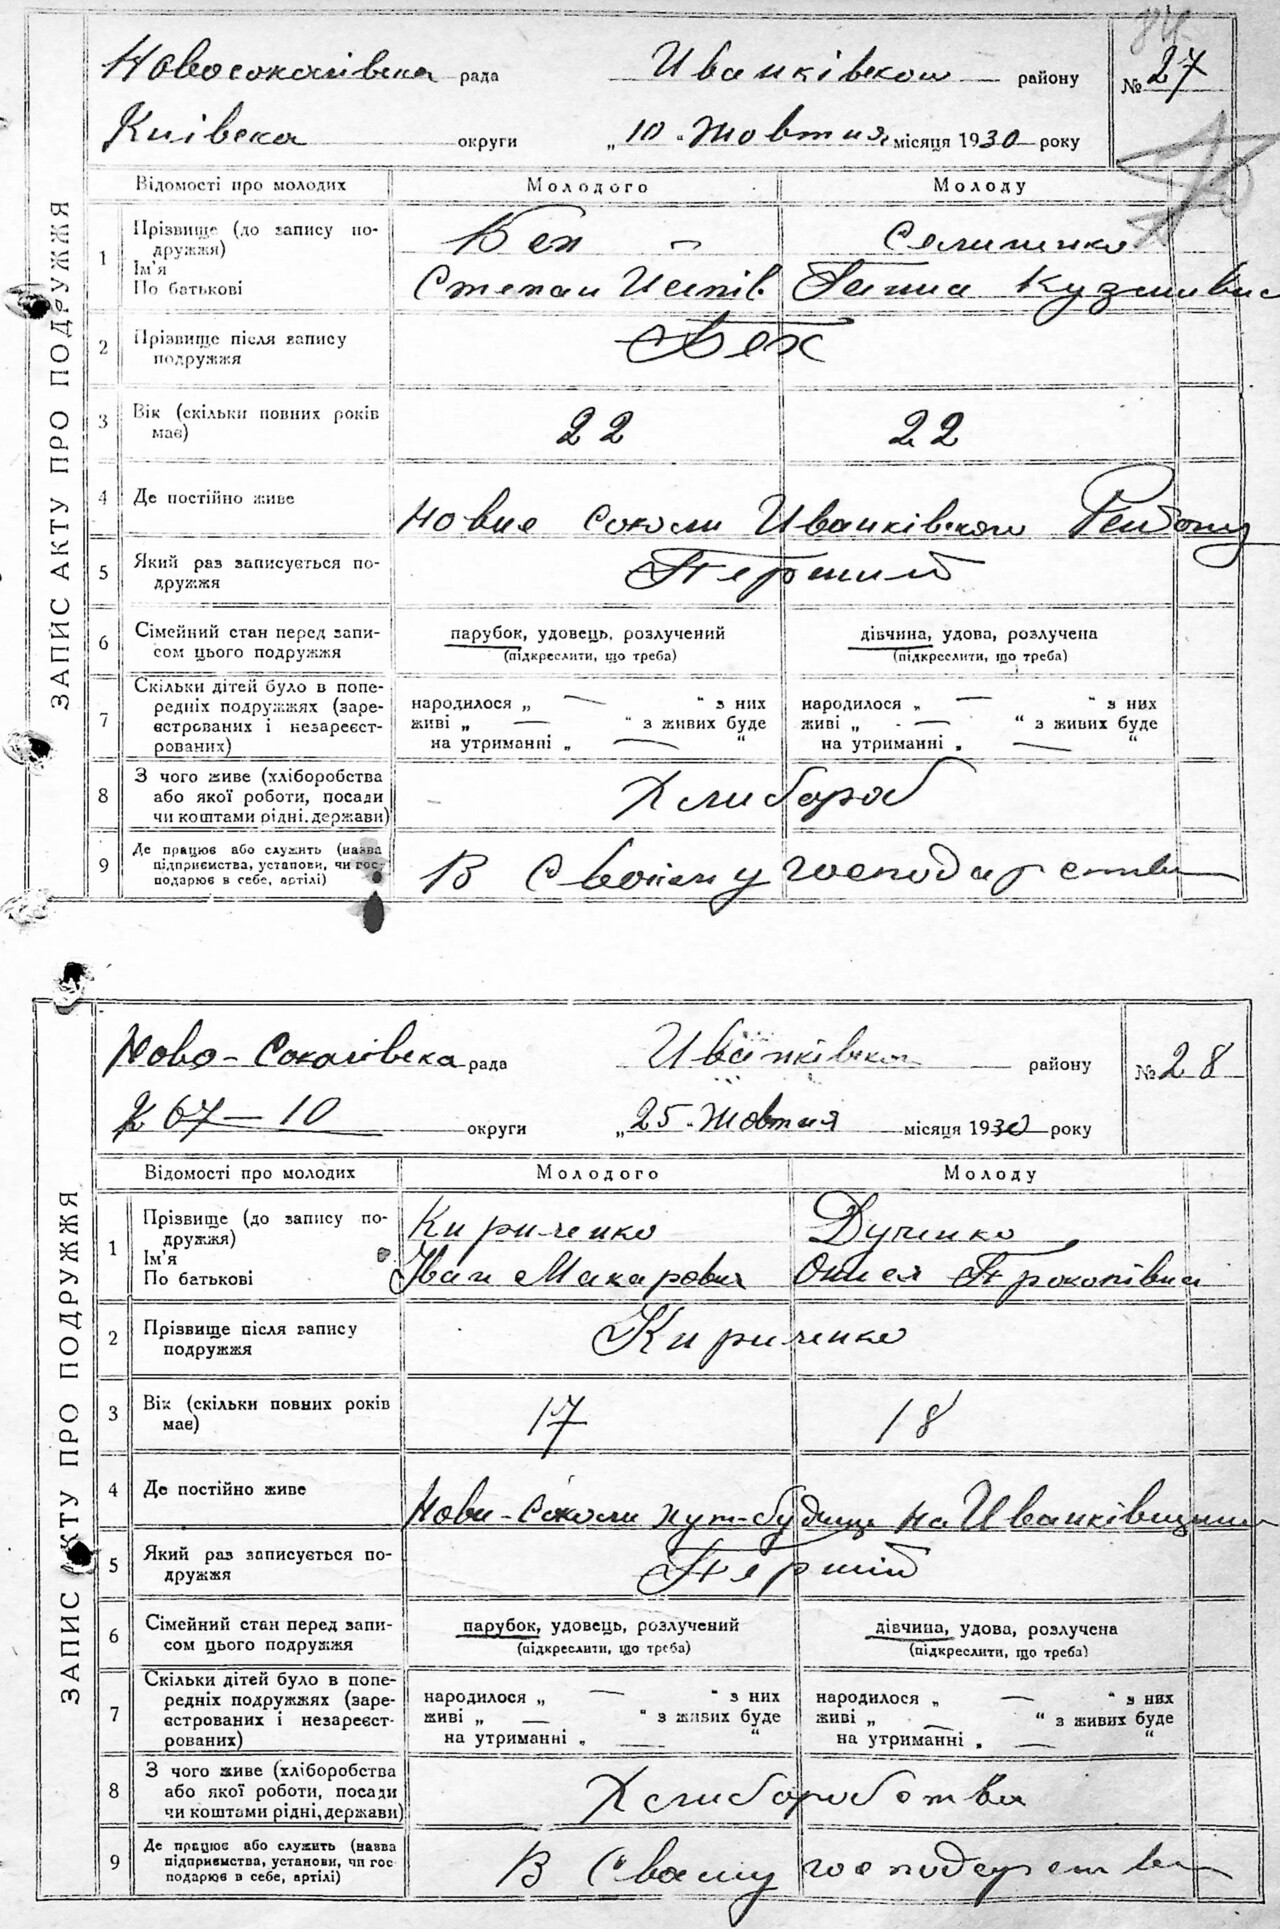 84.
Новосоколівска рада Иванківском району № 27
Київска округи „10" Жовтня місяця 1930 року
ЗАПИС АКТУ ПРО ПОДРУЖЖЯ
Відомості про молодих Молодого Молоду
1 Прізвище (до запису по-
дружжя) Бех
Ім'я
По батькові Степан Исипів Ганна Кузмивна
2 Прізвище після запису
подружжя Бех
3 Вік (скільки повних років
має) 22 22
4 Де постійно живе Новие Соколи Иванківского
5 Який раз записується по-
дружжя Перший
6 Сімейний стан перед запи-
сом цього подружжя
парубок, удовець, розлучений дівчина, удова, розлучена
(підкреслити, що треба) (підкреслити, що треба)
7 Скільки дітей було в попе-
редніх подружжях (заре-
єстрованих і незареєст-
рованих)
народилося „ — " з них народилося „ — " з них
живі „ — " з живих буде живі „ — " з живих буде
на утриманні „ — " на утриманні „ — "
8 З чого живе (хліборобства
або якої роботи, посади
чи коштами рідні, держави) Хлибороб
9 Де працює або служить (назва
підприємства, установи, чи гос-
подарює в себе, артілі) В Своїему господарстви
Ново-Соколівска рада Иванківска району № 28
К 67—10 округи „25" Жовтня місяця 1930 року
ЗАПИС АКТУ ПРО ПОДРУЖЖЯ
Відомості про молодих Молодого Молоду
1 Прізвище (до запису по-
дружжя) Кириченко Дученко
Ім'я
По батькові Іван Макарович Онися Прокопівна
2 Прізвище після запису
подружжя Кириченко
3 Вік (скільки повних років
має) 17 18
4 Де постійно живе Нови-Соколи хут-будище на Иванківщини
5 Який раз записується по-
дружжя Перший
6 Сімейний стан перед запи-
сом цього подружжя
парубок, удовець, розлучений дівчина, удова, розлучена
(підкреслити, що треба) (підкреслити, що треба)
7 Скільки дітей було в попе-
редніх подружжях (заре-
єстрованих і незареєст-
рованих)
народилося „ — " з них народилося „ — " з них
живі „ — " з живих буде живі „ — " з живих буде
на утриманні „ — " на утриманні „ — "
8 З чого живе (хліборобства
або якої роботи, посади
чи коштами рідні, держави) Хлиборобства
9 Де працює або служить (назва
підприємства, установи, чи гос
подарює в себе, артілі) В Своему господарстви